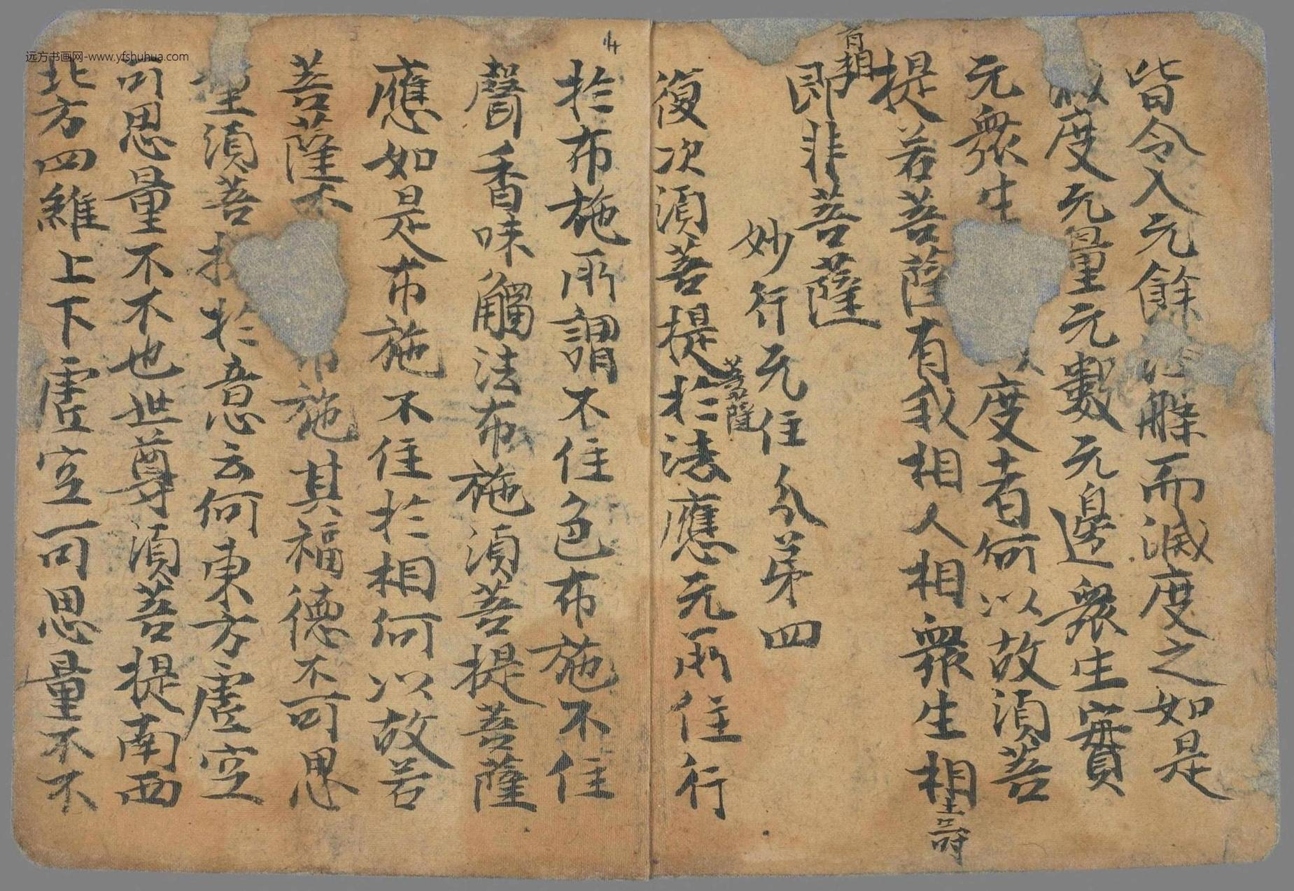 远方书画网-www.yfshuhua.com
皆令入元餘涅槃而滅度之如是
滅度元量元數元邊衆生實
元衆生度者何以故須菩
提若菩薩有我相人相衆生相壽
者相
即非菩薩
妙行元住分苐四
復次須菩提菩薩扵法應元所住行
扵布施所謂不住色布施不住
聲香味觸法布施須菩提菩薩
應如是布施不住扵相何以故若
菩薩不布施其福德不可思
量須菩提扵意云何東方虛空
可思量不不也世尊須菩提南西
北方四維上下虛空可思量不不